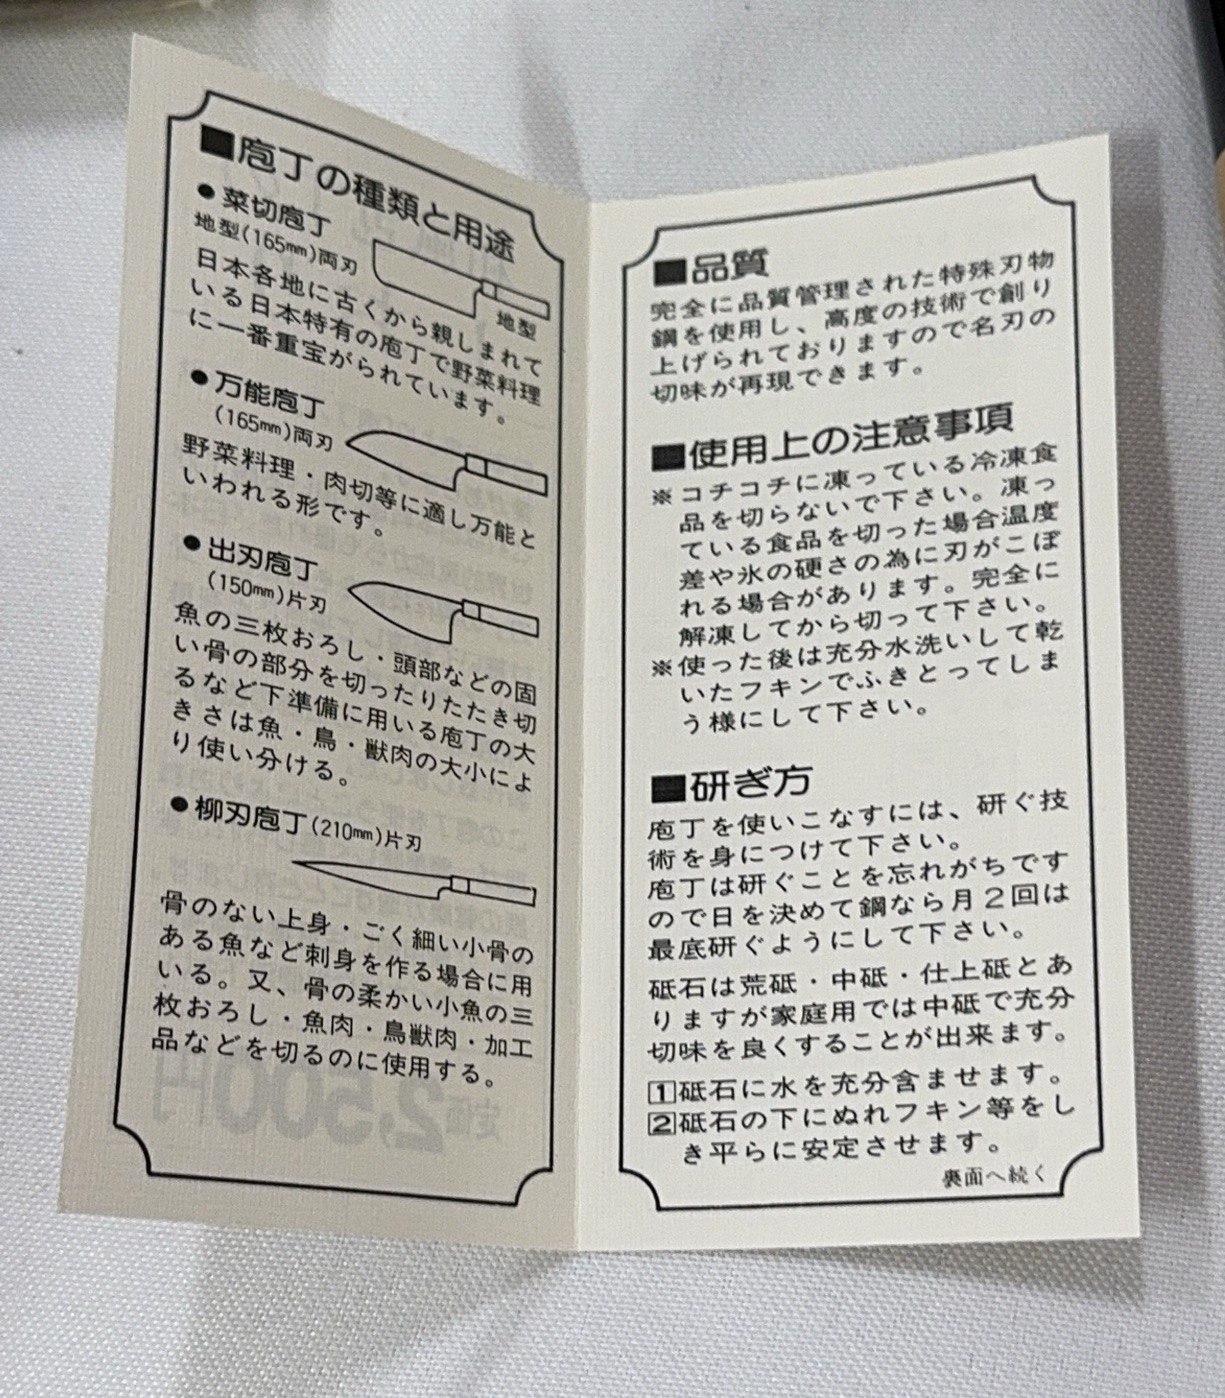 ■庖丁の種類と用途
●菜切庖丁
地型(165㎜)両刃
地型
日本各地に古くから親しまれて
いる日本特有の庖丁で野菜料理
に一番重宝がられています。
●万能庖丁
(165㎜)両刃
野菜料理・肉切等に適し万能と
いわれる形です。
●出刃庖丁
(150㎜)片刃
魚の三枚おろし・頭部などの固
い骨の部分を切ったりたたき切
るなど下準備に用いる庖丁の大
きさは魚・鳥・獣肉の大小によ
り使い分ける。
●柳刃庖丁(210㎜)片刃
骨のない上身・ごく細い小骨の
ある魚など刺身を作る場合に用
いる。又、骨の柔かい小魚の三
枚おろし・魚肉・鳥獣肉・加工
品などを切るのに使用する。
■品質
完全に品質管理された特殊刃物
鋼を使用し、高度の技術で創り
上げられておりますので名刃の
切味が再現できます。
■使用上の注意事項
※コチコチに凍っている冷凍食
品を切らないで下さい。凍っ
ている食品を切った場合温度
差や氷の硬さの為に刃がこぼ
れる場合があります。完全に
解凍してから切って下さい。
※使った後は充分水洗いして乾
いたフキンでふきとってしま
う様にして下さい。
■研ぎ方
庖丁を使いこなすには、研ぐ技
術を身につけて下さい。
庖丁は研ぐことを忘れがちです
ので日を決めて鋼なら月２回は
最底研ぐようにして下さい。
砥石は荒砥・中砥・仕上砥とあ
りますが家庭用では中砥で充分
切味を良くすることが出来ます。
1砥石に水を充分含ませます。
2砥石の下にぬれフキン等をし
き平らに安定させます。
裏面へ続く
定価2,500円